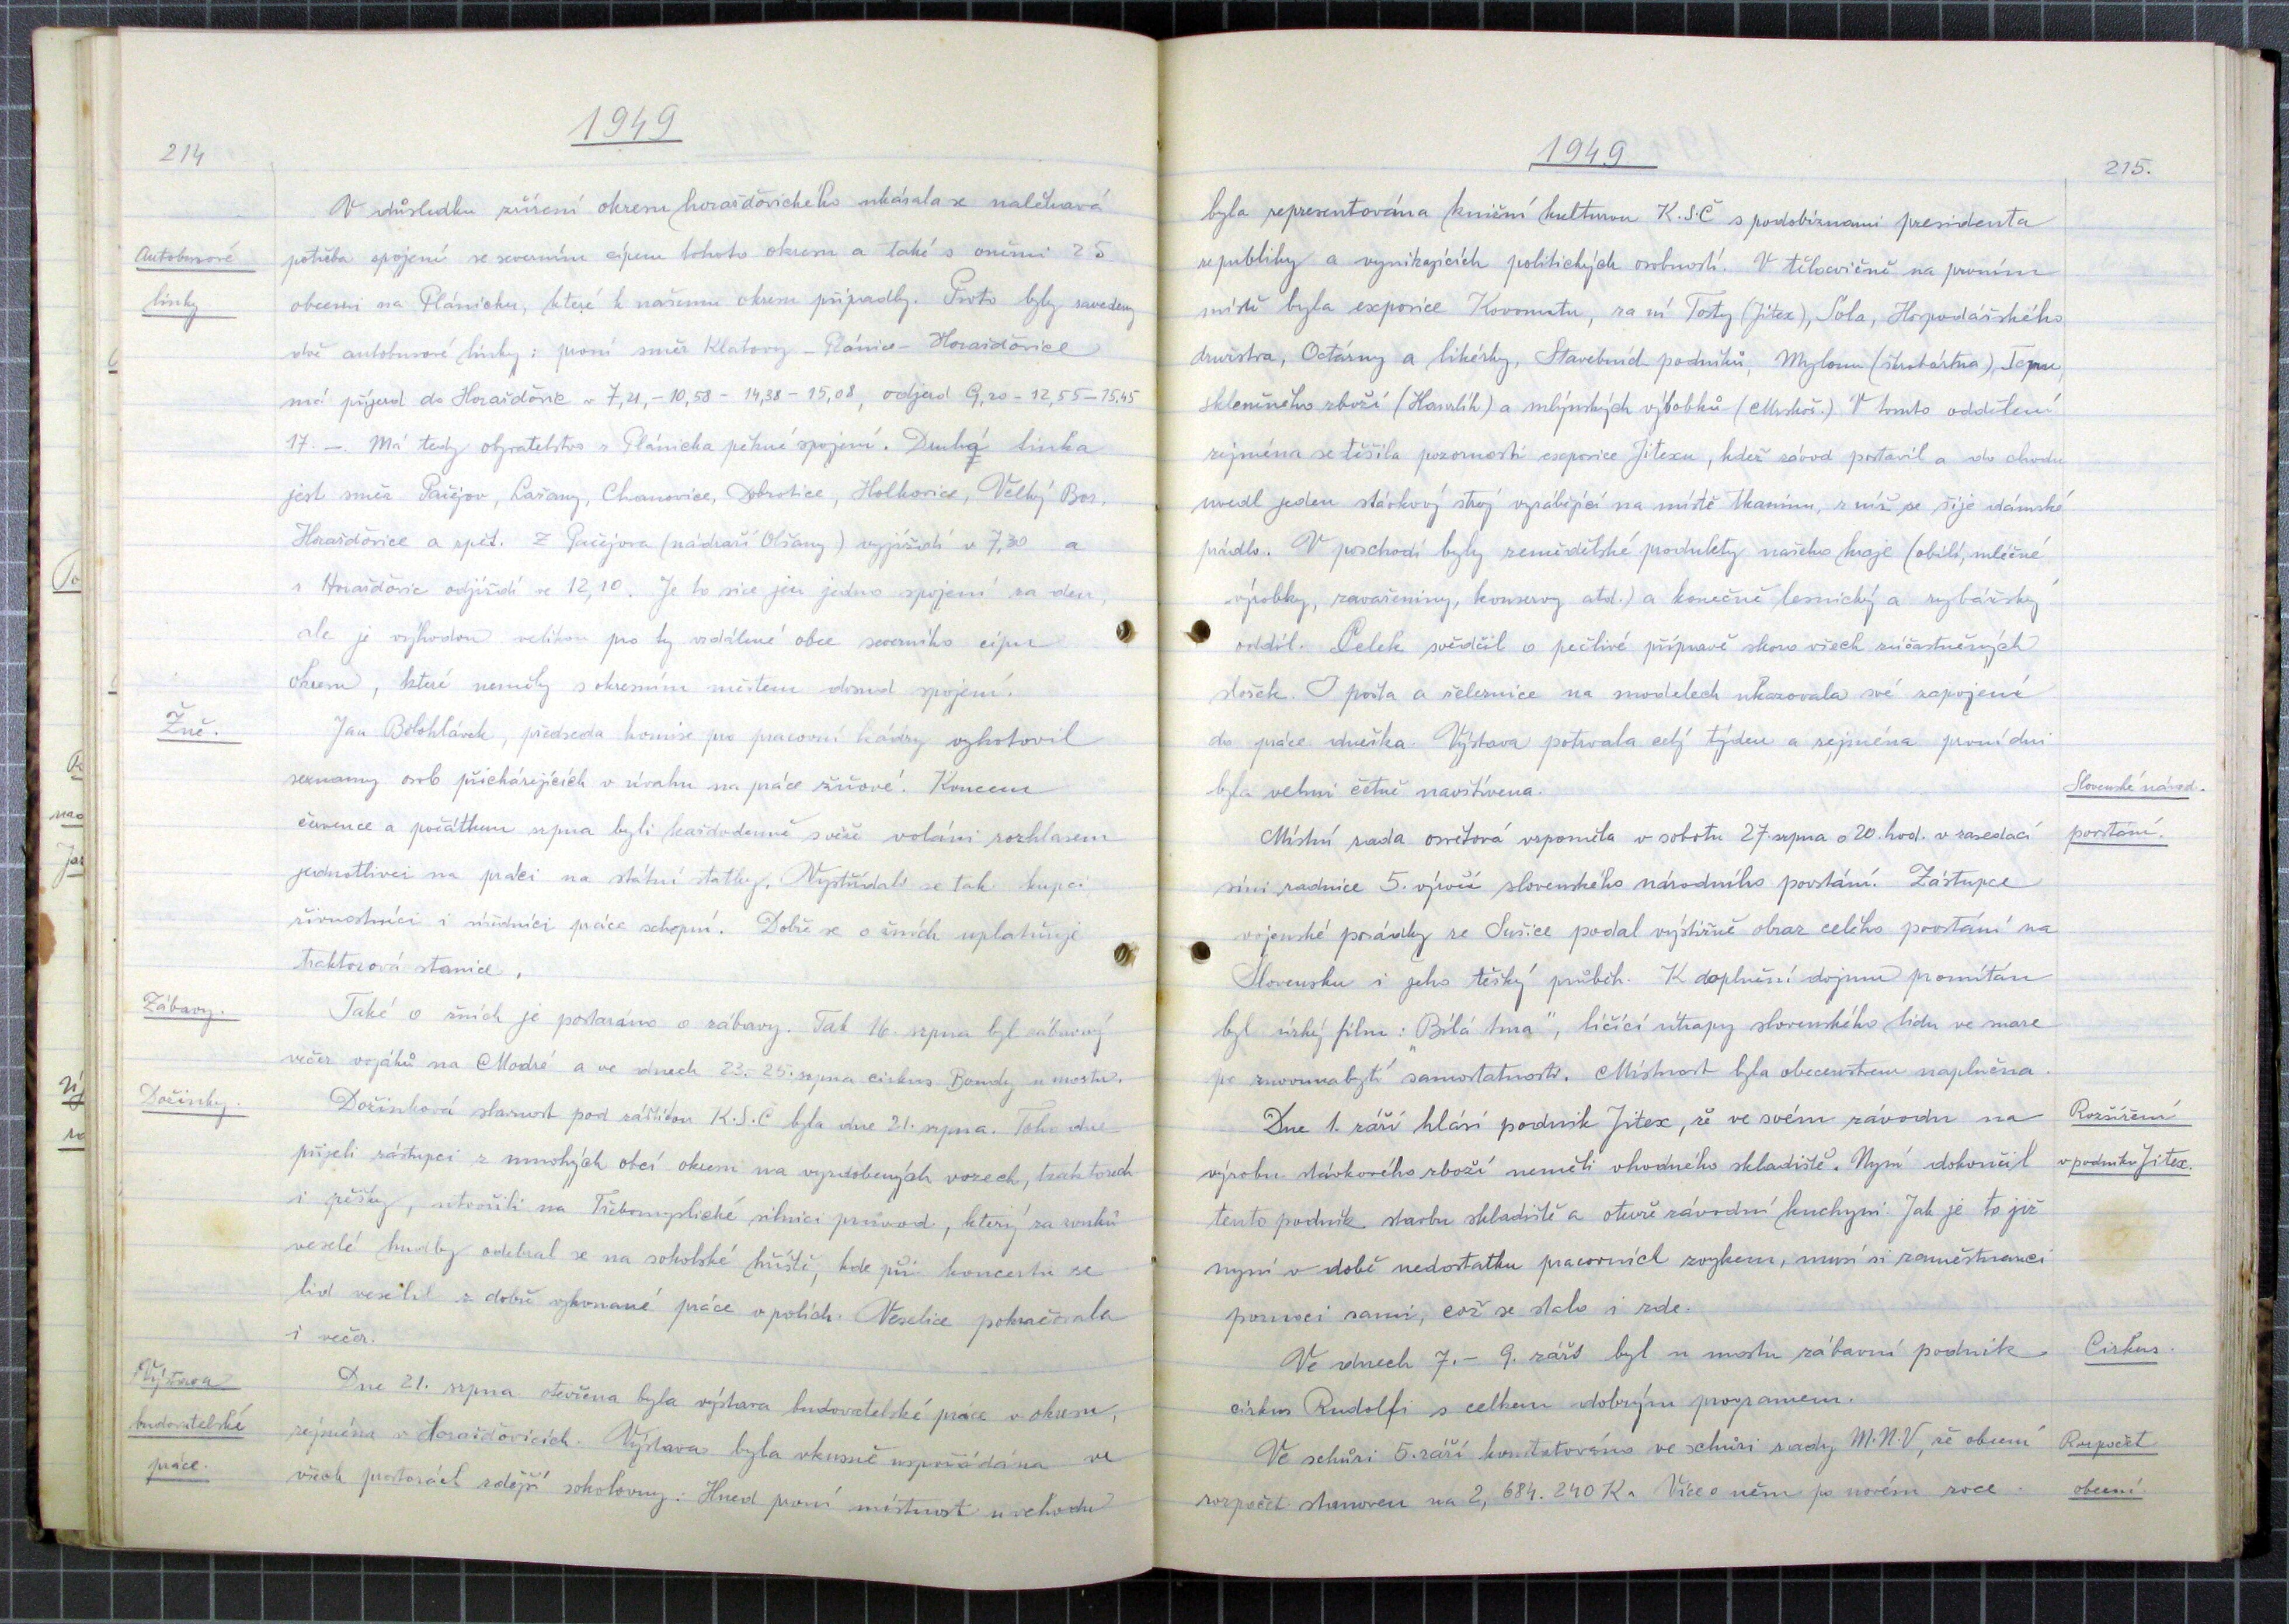 1949
214
V důsledku zřízení okresu horažďovického ukázala se naléhavá
Autobusové
potřeba spojení se severním cípem tohoto okresu a také s oněmi 25
linky
obcemi na Plánicku, které k našemu okresu připadly. Proto byly zavedeny
dvě autobusové linky: první směr Klatovy - Plánice - Horažďovice
má příjezd do Horažďovic v 7,21, - 10,58 - 14,38 - 15,08, odjezd 9,20 - 12,55 - 15.45
17. -. Má tedy obyvatelstvo z Plánicka pěkné spojení. Druhá linka
jest směr Pačejov, Lažany, Chanovice, Dobrotice, Holkovice, Velký Bor,
Horažďovice a zpět. Z Pačejova (nádraží Olšany) vyjíždí v 7,30 a
z Horažďovic odjíždí ve 12,10. Je to sice jen jedno spojení za den,
ale je výhodou velikou pro ty vzdálené obce severního cípu
okresu, které neměly s okresním městem dosud spojení.
Žně.
Jan Bělohlávek, předseda komise pro pracovní kádry vyhotovil
seznamy osob přicházejících v úvahu na práce žňové. Koncem
července a počátkem srpna byli každodenně svěže voláni rozhlasem
jednotlivci na práci na státní statky. Vystřídali se tak kupci
živnostníci i úředníci práce schopní. Dobře se o žních uplatňuje
traktorová stanice.
Zábavy.
Také o žních je postaráno o zábavy. Tak 16. srpna byl zábavný
večer vojáků na Modré a ve dnech 23.-25. srpna cirkus Bondy u mostu.
Dožinky.
Dožinková slavnost pod záštitou K.S.Č byla dne 21. srpna. Toho dne
přijeli zástupci z mnohých obcí okresu na vyzdobených vozech, traktorech
i pěšky, utvořili na Třebomyslické silnici průvod, který za zvuků
veselé hudby odebral se na sokolské hřiště, kde při koncertu se
lid veselil z dobře vykonané práce v polích. Veselice pokračovala
i večer.
Výstava
Dne 21. srpna otevřena byla výstava budovatelské práce v okresu,
budovatelské
zejména v Horažďovicích. Výstava byla vkusně uspořádána ve
práce.
všech prostorách zdejší sokolovny. Hned první místnost u vchodu
1949
215.
byla representována knižní kulturou K.S.Č s podobiznami presidenta
republiky a vynikajících politických osobností. V tělocvičně na prvním
místě byla exposice Kovomatu, za ní Tosty (Jitex), Sola, Hospodářského
družstva, Octárny a likérky, Stavebních podniků, Mylonu (škrobárna), Tepu,
skleněného zboží (Havrlík) a mlýnských výrobků. V tomto oddělení
zejména se těšila pozornosti exposice Jitexu, kdež závod postavil a do chodu
uvedl jeden stávkový stroj vyrábějící na místě tkaninu, z níž se šije dámské
prádlo. V poschodí byly zemědělské produkty našeho kraje (obilí, mléčné
výrobky, zavařeniny, konservy atd.) a konečně lesnický a rybářský
oddíl. Celek svědčil o pečlivé přípravě skoro všech zúčastněných
složek. I pošta a železnice na modelech ukazovala své zapojení
do práce dneška. Výstava potrvala celý týden a zejména první dni
byla velmi četně navštívena.
Slovenské národ.
Místní rada osvětová vzpoměla v sobotu 27. srpna o 20. hod. v zasedací
povstání.
síni radnice 5. výročí slovenského národního povstání. Zástupce
vojenské posádky ze Sušice podal výstižně obraz celého povstání na
Slovensku i jeho těžký průběh. K doplnění dojmu promítán
byl úzký film: "Bílá tma", líčící útrapy slovenského lidu ve snaze
po znovunabytí samostatnosti. Místnost byla obecenstvem naplněna.
Dne 1. září hlásí podnik Jitex, že ve svém závodu na
Rozšíření
výrobu stávkového zboží neměli vhodného skladiště. Nyní dokončil
v podniku Jitex.
tento podnik stavbu skladiště a otevře závodní kuchyni. Jak je to již
nyní v době nedostatku pracovních zvykem, musí si zaměstnanci
pomoci sami, což se stalo i zde.
Ve dnech 7. - 9. září byl u mostu zábavní podnik
Cirkus.
cirkus Rudolfi s celkem dobrým programem.
Ve schůzi 5. září konstatováno ve schůzi rady M.N.V, že obecní
Rozpočet
rozpočet stanoven na 2,684.240 K. Více o něm po novém roce.
obecní.